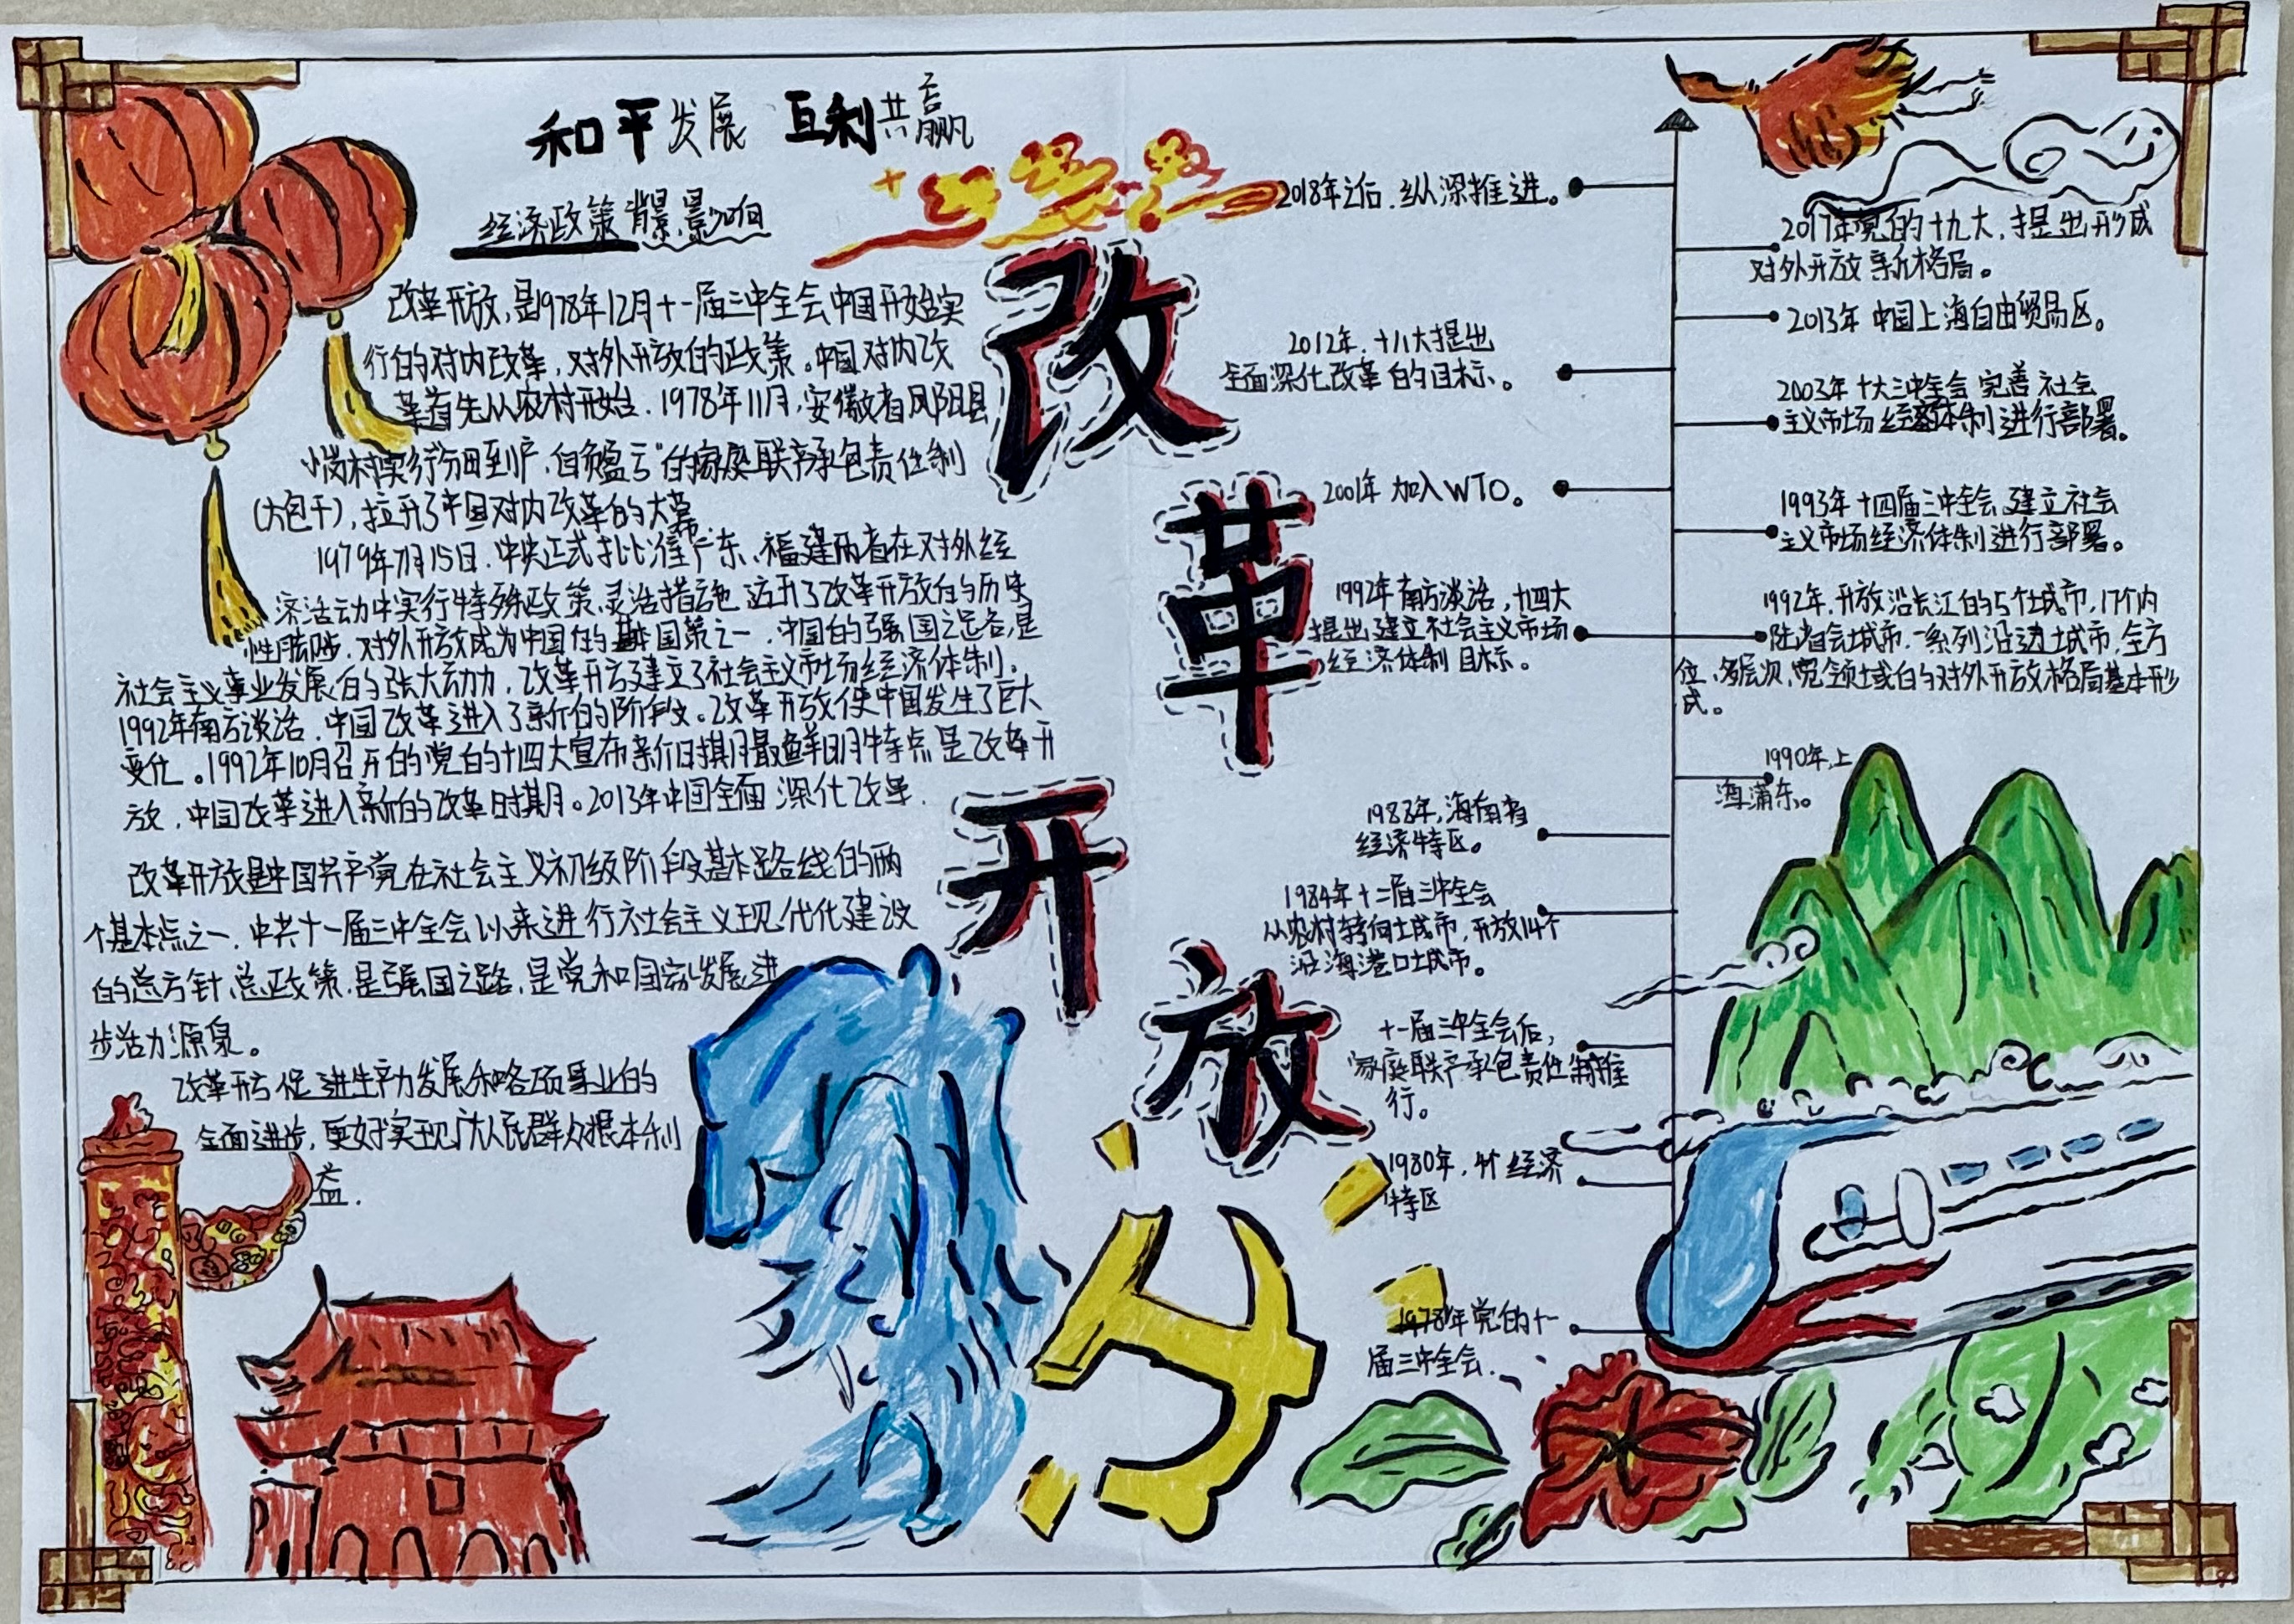 和平发展 互利共赢
经济政策背景、影响
改革开放,是1978年12月十一届三中全会中国开始实
行的对内改革,对外开放的政策。中国对内改
革首先从农村开始.1978年11月,安徽省凤阳县
小岗村实行"分田到户,自负盈亏"的家庭联产承包责任制
(大包干),拉开了中国对内改革的大幕
1979年7月15日.中央正式批准广东、福建两省在对外经
济活动中实行特殊政策、灵活措施 迈开了改革开放的历史
性脚步.对外开放成为中国的基本国策之一.中国的强国之路,是
社会主义事业发展的强大动力,改革开放建立了社会主义市场经济体制。
1992年南方谈话.中国改革进入了新的阶段。改革开放使中国发生了巨大
变化。1992年10月召开的党的十四大宣布新时期最鲜明特点是改革开
放,中国改革进入新的改革时期。2013年中国全面深化改革.
改革开放是中国共产党在社会主义初级阶段基本路线的两
个基本点之一.中共十一届三中全会以来进行社会主义现代化建设
的总方针、总政策.是强国之路,是党和国家发展进
步活力源泉。
改革开放促进生产力发展和各项事业的
全面进步,更好实现广大人民群众根本利
益.
改
革
开
放
2018年之后.纵深推进。
2017年党的十九大.提出形成
对外开放新格局。
2013年中国上海自由贸易区。
2012年.十八大提出
全面深化改革的目标。
2003年十六三中全会完善社会
主义市场经济体制进行部署。
2001年加入WTO。
1993年十四届三中全会建立社会
主义市场经济体制进行部署。
1992年南方谈话,十四大
提出建立社会主义市场
经济体制目标。
1992年.开放沿长江的5个城市,17个内
陆省会城市.一系列沿边城市,全方
位、多层次、宽领域的对外开放格局基本形
成。
1990年,上
海浦东。
1988年,海南省
经济特区。
1984年十二届三中全会
从农村转向城市,开放14个
沿海港口城市。
十一届三中全会后,
家庭联产承包责任制推
行。
1980年,4个经济
特区
1978年党的十一
届三中全会.